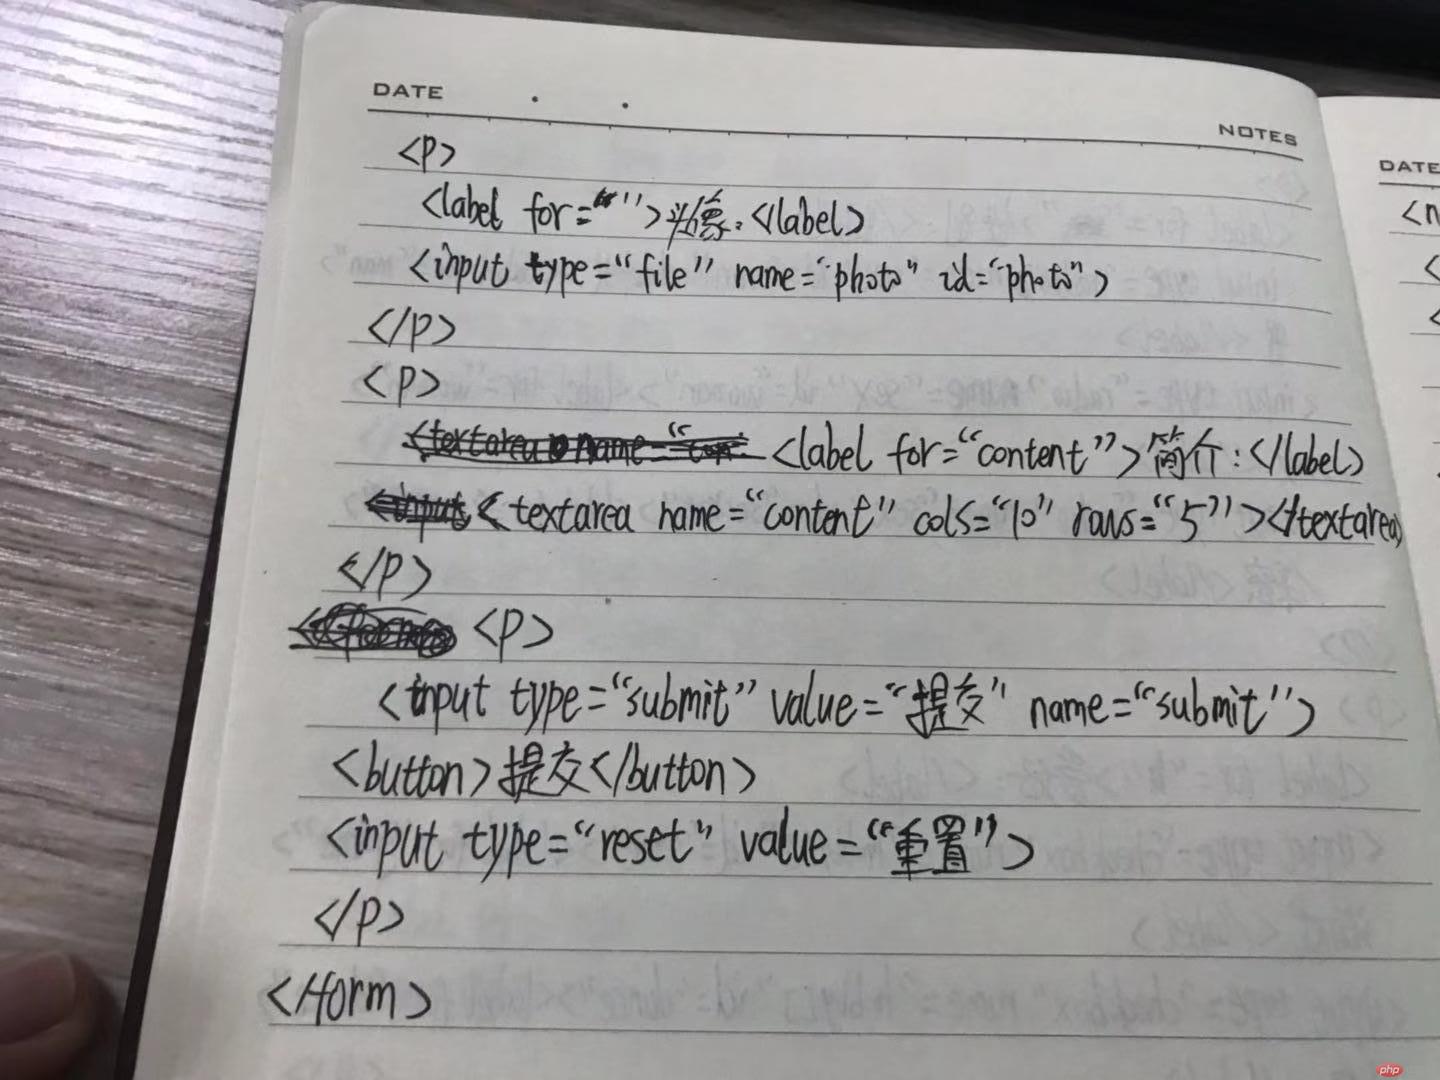 DATE . .
NOTES
<p>
<label for="">头像:</label>
<input type="file" name="photo" id="photo">
</p>
<p>
<label for="content">简介:</label>
<textarea name="content" cols="10" rows="5"></textarea>
</p>
<p>
<input type="submit" value="提交" name="submit">
<button>提交</button>
<input type="reset" value="重置">
</p>
</form>
DATE
<n
<
<
php